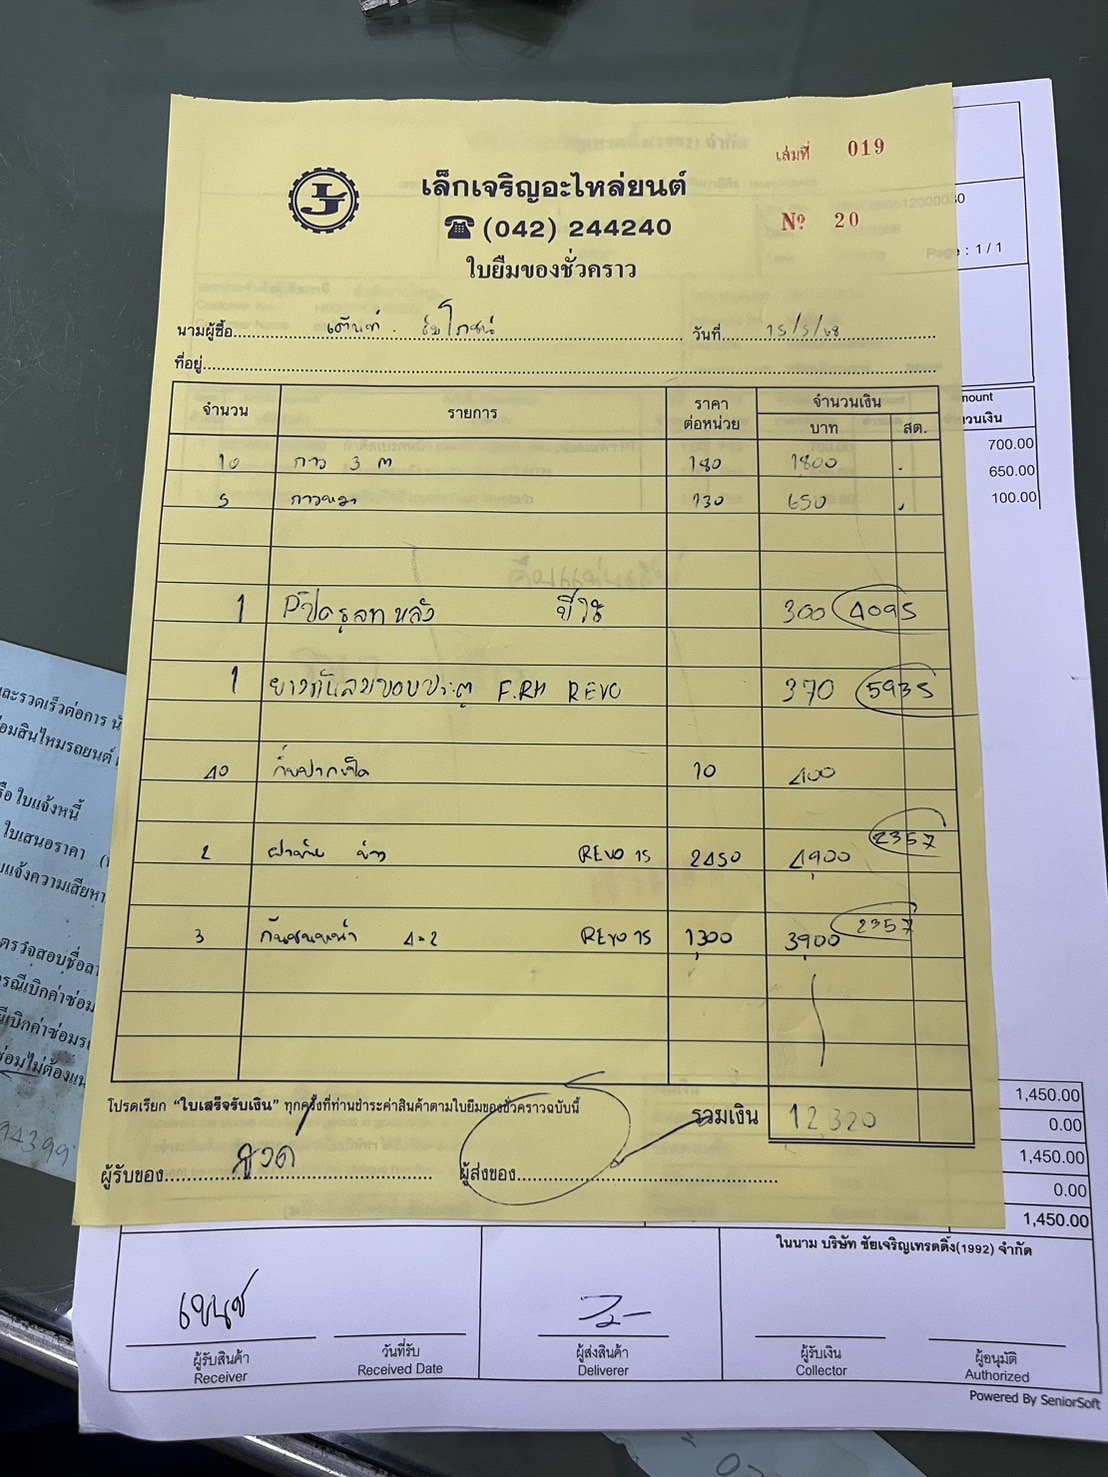 เล่มที่ 019
เล็กเจริญอะไหล่ยนต์
(042) 244240
Nº 20
ใบยืมของชั่วคราว
Page : 1 / 1
นามผู้ซื้อ วันที่ 15/5/68
ที่อยู่
จำนวน รายการ ราคาต่อหน่วย จำนวนเงิน
บาท สต.
10 กาว 3 M 180 1800
5 กาว 130 650
1 300 4095
1 ยางกันลมขอบประตู F.RH REVO 370 5935
40 กิ๊บปากเป็ด 10 400
2 REVO 15 2450 4,900 2357
3 กันชนหน้า 4x2 REVO 15 1,300 3,900 2357
โปรดเรียก “ใบเสร็จรับเงิน” ทุกครั้งที่ท่านชำระค่าสินค้าตามใบยืมของชั่วคราวฉบับนี้
รวมเงิน 12,320
ผู้รับของ ผู้ส่งของ
จำนวนเงิน
700.00
650.00
100.00
1,450.00
0.00
1,450.00
0.00
1,450.00
ในนาม บริษัท ชัยเจริญเทรดดิ้ง(1992) จำกัด
ผู้รับสินค้า วันที่รับ ผู้ส่งสินค้า ผู้รับเงิน ผู้อนุมัติ
Receiver Received Date Deliverer Collector Authorized
Powered By SeniorSoft
และรวดเร็วต่อการ
ซ่อมสินไหมรถยนต์
ใบแจ้งหนี้
ใบเสนอราคา
ตรวจสอบชื่อ
94399